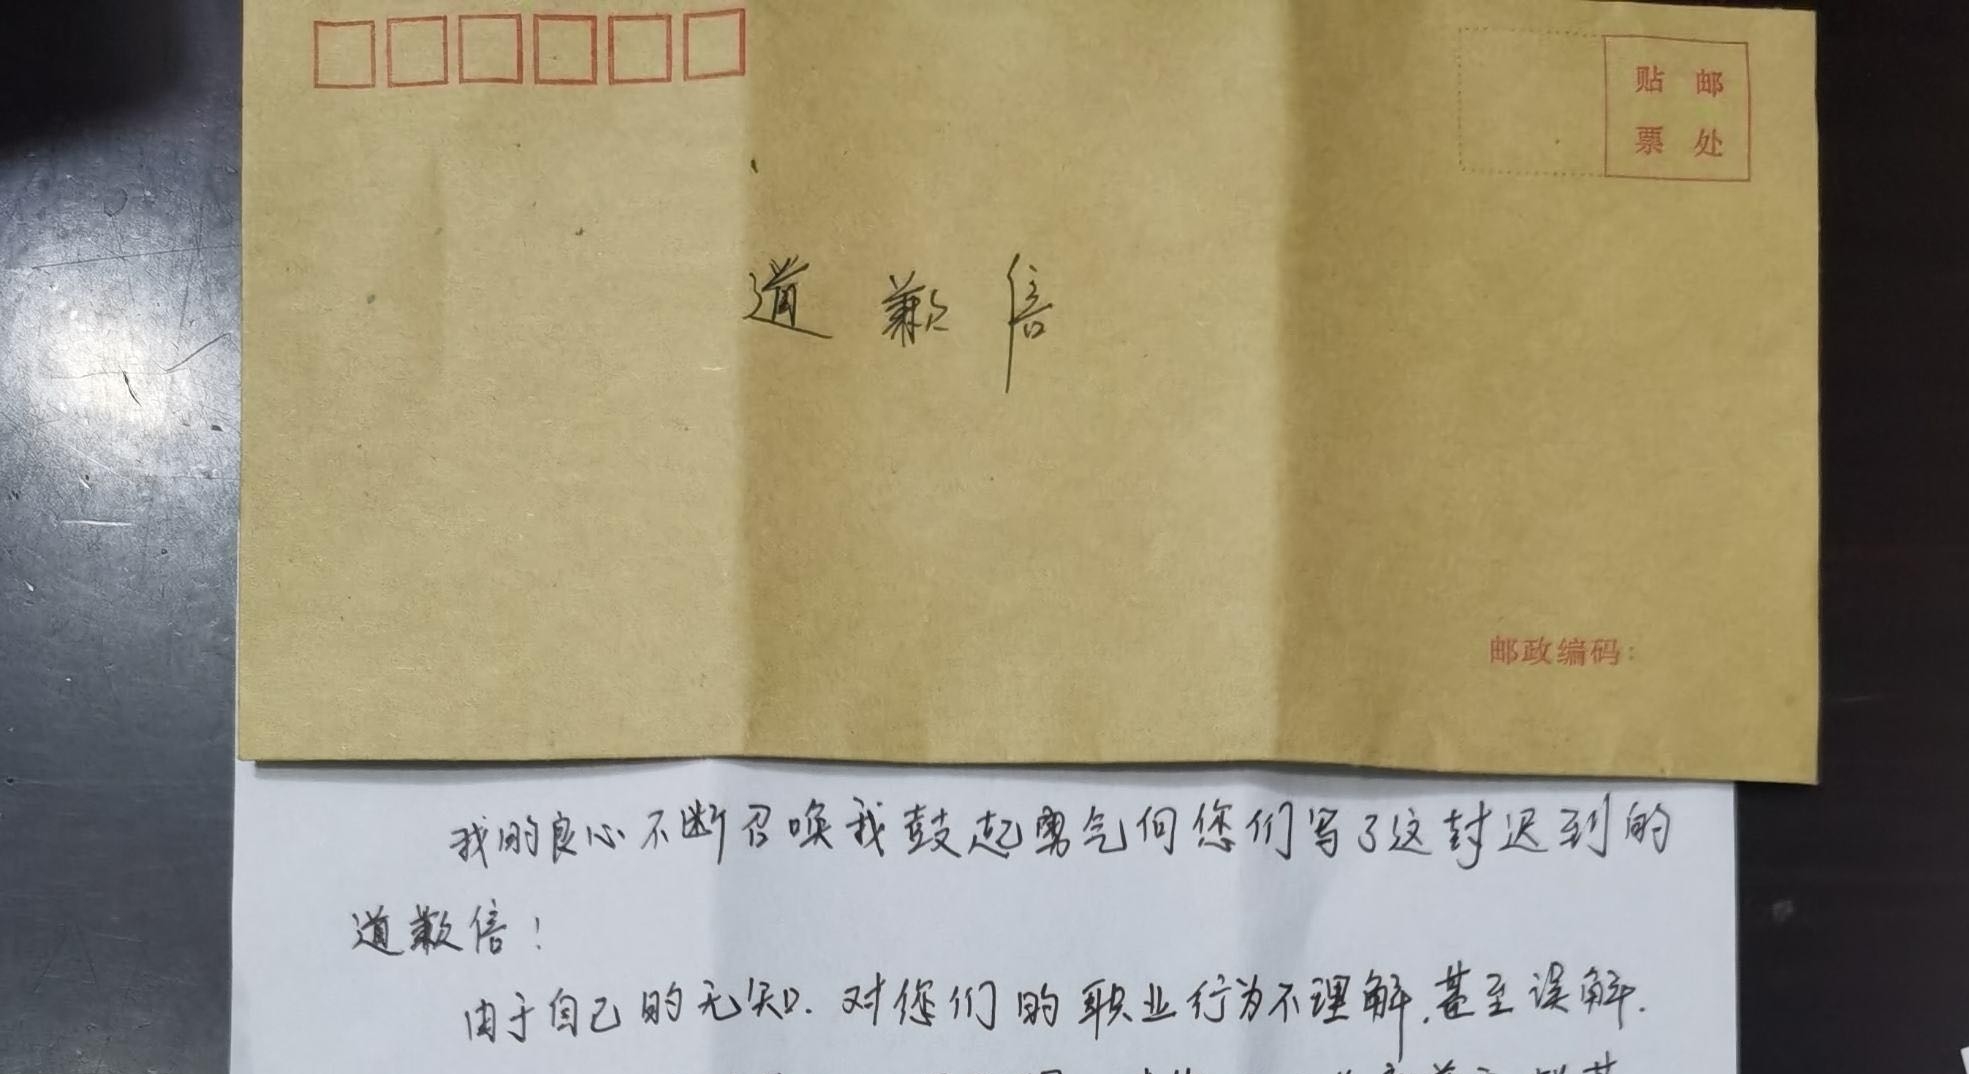 贴邮
票处
道歉信
邮政编码:
我的良心不断召唤我鼓起勇气向您们写了这封迟到的
道歉信!
由于自己的无知.对您们的职业行为不理解.甚至误解.